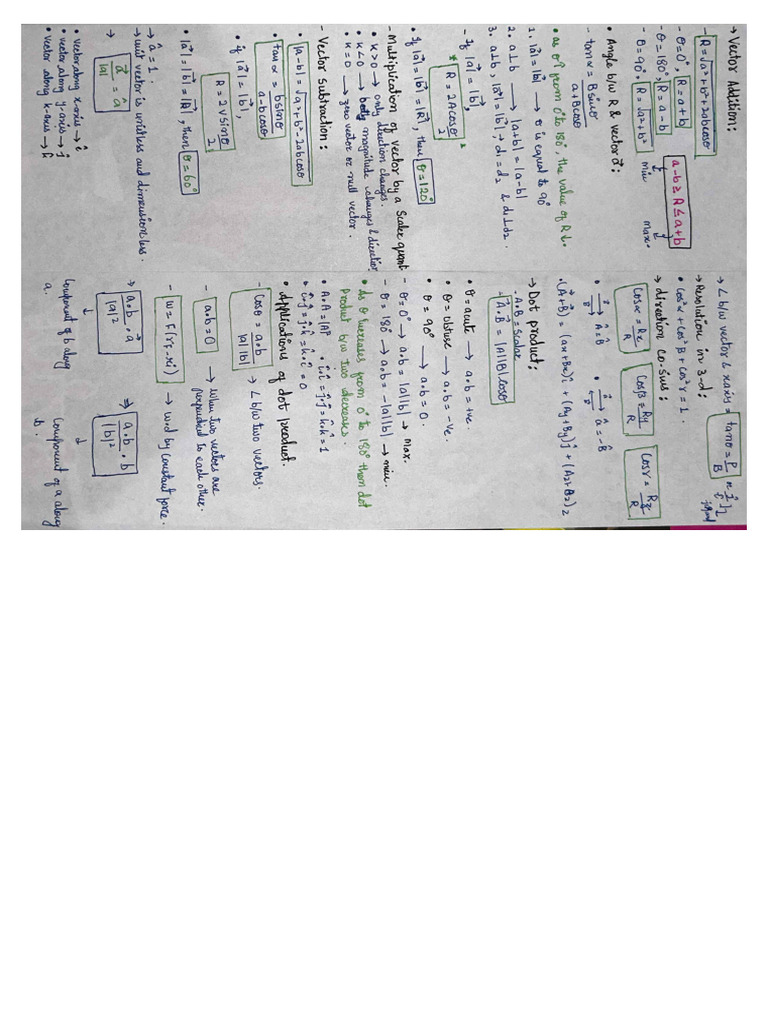 → Vector Addition :
- R = √a²+b²+2abcosθ
- θ = 0°, R = a+b
- θ = 180°, R = a-b
- θ = 90°, R = √a²+b²
a-b ≥ R ≤ a+b
min
max.
• Angle b/w R & vector a⃗ :
- tanα = Bsinθ / a+Bcosθ
• as θ↑ from 0° to 180°, the value of R↓.
1. |a⃗| = |b⃗| → θ is equal to 90°
2. a⊥b → |a+b| = |a-b|
3. a⊥b, |a⃗| = |b⃗| → d₁ = d₂ & d₁⊥d₂.
- If |a⃗| = |b⃗|,
* R = 2Acosθ/2 *
• If |a⃗| = |b⃗| = |R⃗|, then θ = 120°
- Multiplication of vector by a scalar quant
• K>0 → only direction changes.
• K<0 → both magnitude changes & direction
• K=0 → zero vector or null vector.
- Vector Subtraction :
• |a-b| = √a²+b²-2abcosθ
• tanα = bsinθ / a-bcosθ
• if |a⃗| = |b⃗|,
R = 2Vsinθ/2
• |a⃗| = |b⃗| = |R⃗|, then θ = 60°
→ â = 1 :
→ unit vector is unitless and dimensionless.
→ a⃗/|a| = â
• vector along x-axis → î
• vector along y-axis → ĵ
• vector along k-axis → k̂
→ ∠ b/w vector & xaxis = tanθ = P/B
→ Resolution in 3-d :
• cos²α + cos²β + cos²γ = 1.
→ direction co-sins :
Cosα = Rx/R
Cosβ = Ry/R
Cosγ = Rz/R
A⃗ = B⃗
a⃗ = -B⃗
• (A⃗+B⃗) = (ax+bx)î + (Ay+By)ĵ + (Az+Bz)z
→ Dot product :
• A.B = Scalar
A⃗.B⃗ = |A||B|.cosθ
• θ = acute → a.b = +ve.
• θ = obtuse → a.b = -ve.
• θ = 90° → a.b = 0.
- θ = 0° → a.b = |a||b| → max.
- θ = 180° → a.b = -|a||b| → min.
• As θ increases from 0° to 180° then dot
Product b/w two decreases.
• A.A = |A|² • î.î = ĵ.ĵ = k̂.k̂ = 1
• î.ĵ = ĵ.k̂ = k̂.î = 0
• Applications of dot product.
- Cosθ = a.b / |a||b| → ∠ b/w two vectors.
- a.b = 0 → when two vectors are
perpendicular to each other.
- W = F(rf - ri) → W.d by constant force.
→ a.b/|a|² . a⃗
Component of b along
a.
⇒ a.b/|b|² . b
Component of a along
b.